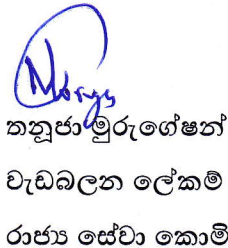 තනූජා මුරුගේෂන්
වැඩබලන ලේකම්
රාජ්‍ය සේවා කොමි